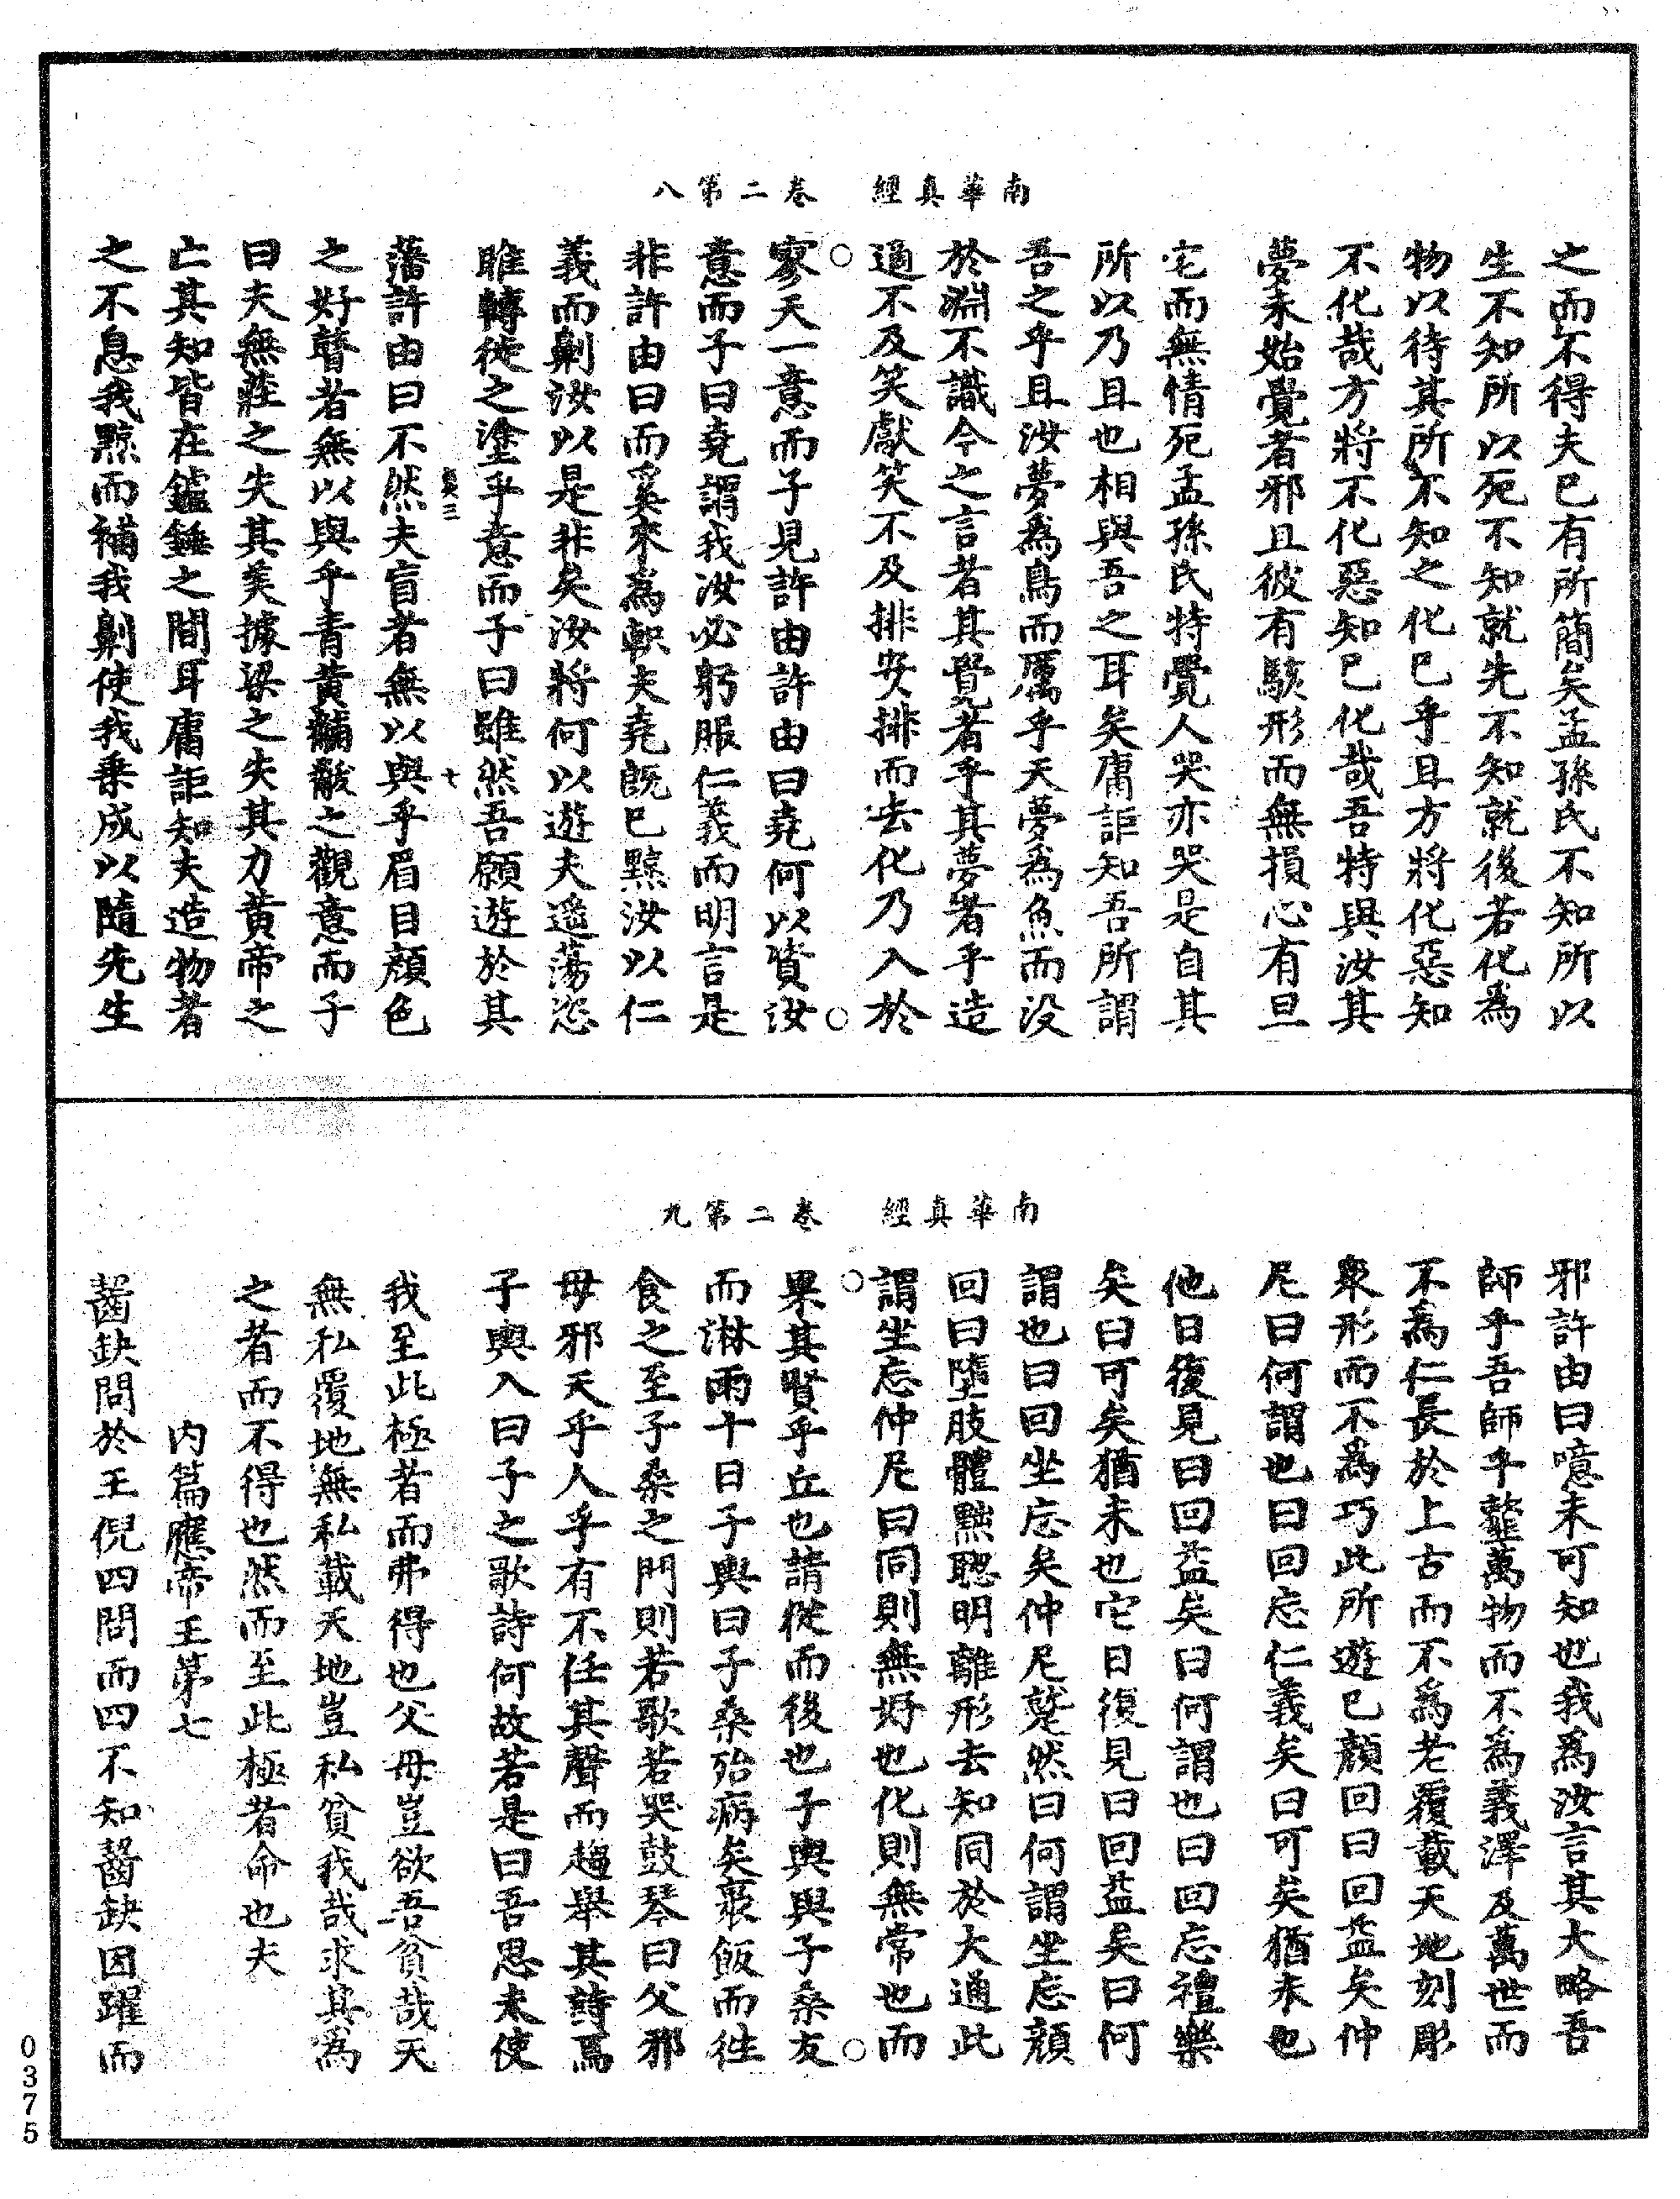 南華真經　卷二第八
之而不得夫已有所簡矣孟孫氏不知所以
生不知所以死不知就先不知就後若化爲
物以待其所不知之化已乎且方將化惡知
不化哉方將不化惡知已化哉吾特與汝其
夢未始覺者邪且彼有駭形而無損心有旦
宅而無情死孟孫氏特覺人哭亦哭是自其
所以乃且也相與吾之耳矣庸詎知吾所謂
吾之乎且汝夢為鳥而厲乎天夢為魚而没
於淵不識今之言者其覺者乎其夢者乎造
適不及笑獻笑不及排安排而去化乃入於
寥天一意而子見許由許由曰堯何以資汝
意而子曰堯謂我汝必躬服仁義而明言是
非許由曰而奚來爲軹夫堯既已黥汝以仁
義而劓汝以是非矣汝將何以遊夫遥蕩恣
睢轉徙之塗乎意而子曰雖然吾願遊於其
藩許由曰不然夫盲者無以與乎眉目顏色
之好瞽者無以與乎青黃黼黻之觀意而子
曰夫無莊之失其美據梁之失其力黃帝之
亡其知皆在鑪錘之間耳庸詎知夫造物者
之不息我黥而補我劓使我乗成以隨先生
南華真經　卷二第九
邪許由曰噫未可知也我爲汝言其大略吾
師乎吾師乎䪠萬物而不為義澤及萬世而
不爲仁長於上古而不爲老覆載天地刻彫
衆形而不爲巧此所遊已顏回曰回益矣仲
尼曰何謂也曰回忘仁義矣曰可矣猶未也
他日復見曰回益矣曰何謂也曰回忘禮樂
矣曰可矣猶未也它日復見曰回益矣曰何
謂也曰回坐忘矣仲尼蹵然曰何謂坐忘顏
回曰墮肢體黜聦明離形去知同於大通此
謂坐忘仲尼曰同則無好也化則無常也而
果其賢乎丘也請從而後也子輿與子桑友
而淋雨十日子輿曰子桑殆病矣裹飯而往
食之至子桑之門則若歌若哭鼓琴曰父邪
母邪天乎人乎有不任其聲而趨舉其詩焉
子輿入曰子之歌詩何故若是曰吾思夫使
我至此極者而弗得也父母豈欲吾貧哉天
無私覆地無私載天地豈私貧我哉求其為
之者而不得也然而至此極者命也夫
内篇應帝王第七
齧缺問於王倪四問而四不知齧缺因躍而
0375